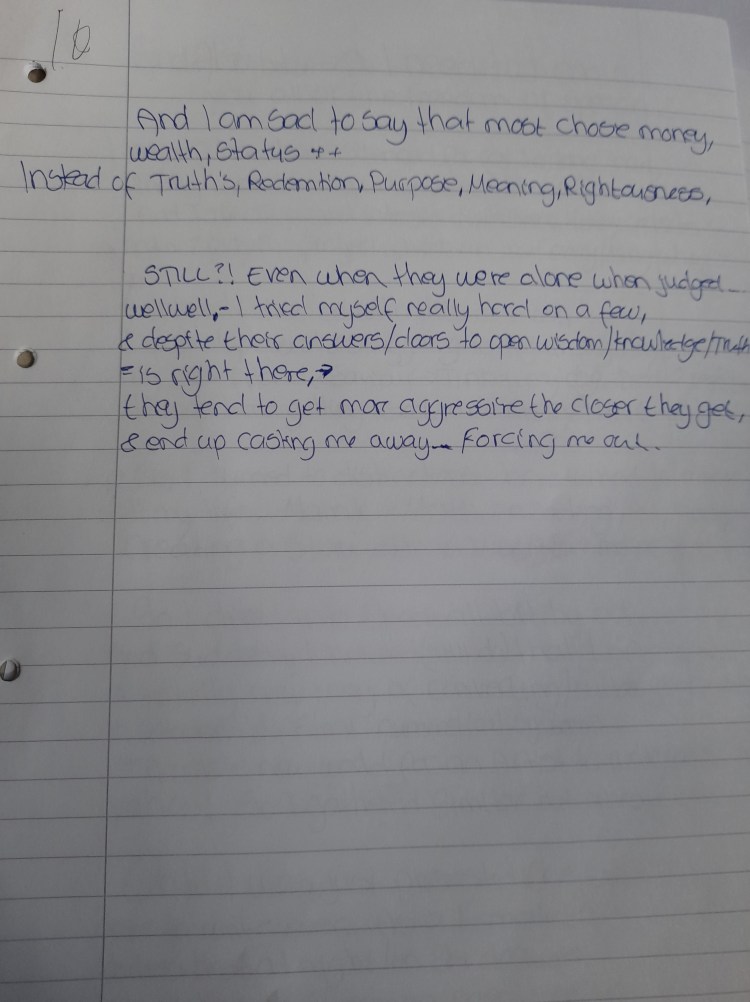 10
And I am sad to say that most chose money,
wealth, status ++
Instead of Truth's, Redemtion, Purpose, Meaning, Rightousness,
STILL?! Even when they were alone when judged...
wellwell,- I tried myself really hard on a few,
& despite their answers/doors to open wisdom/knowledge/truth
= is right there,→
they tend to get more aggressive the closer they get,
& end up casting me away... Forcing me out.